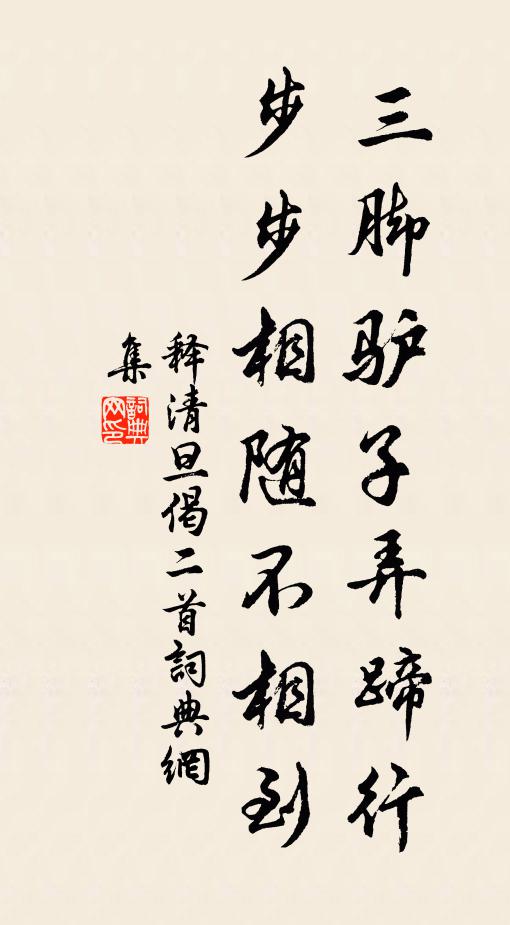 三脚驴子弄蹄行
步步相随不相到
释清旦偈二首詞典網
集
詞典網印